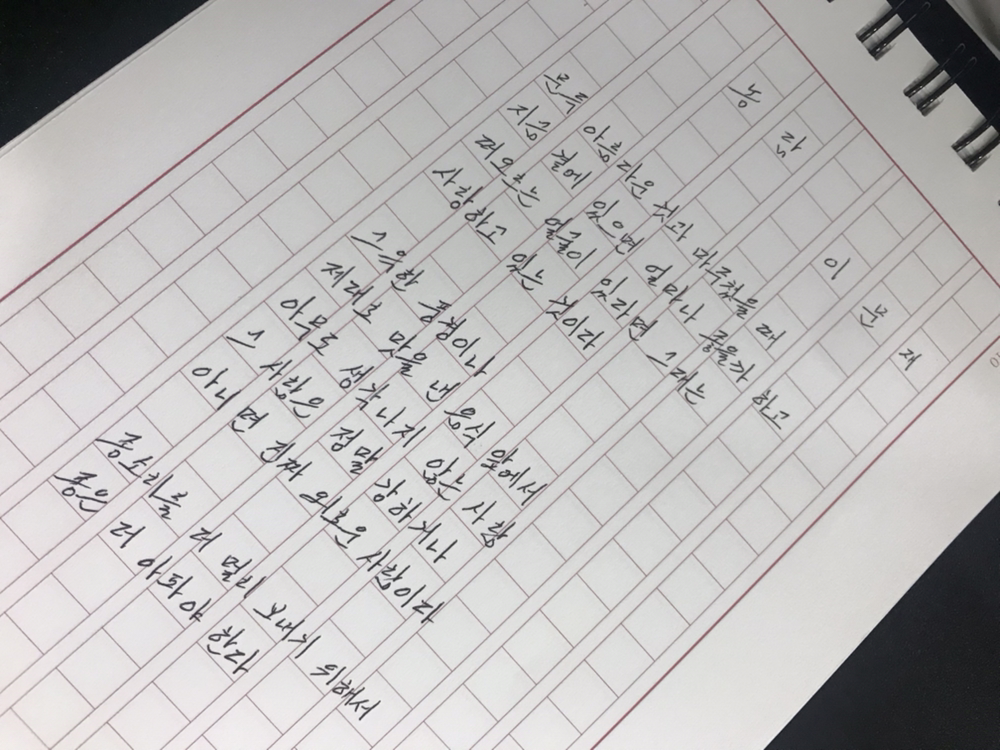 농담
이문재
문득 아름다운 것과 마주쳤을 때
지금 곁에 있으면 얼마나 좋을까 하고
떠오르는 얼굴이 있다면 그대는
사랑하고 있는 것이다
그윽한 풍경이나
제대로 맛을 낸 음식 앞에서
아무도 생각나지 않는 사람
그 사람은 정말 강하거나
아니면 진짜 외로운 사람이다
종소리를 더 멀리 보내기 위해서
종은 더 아파야 한다